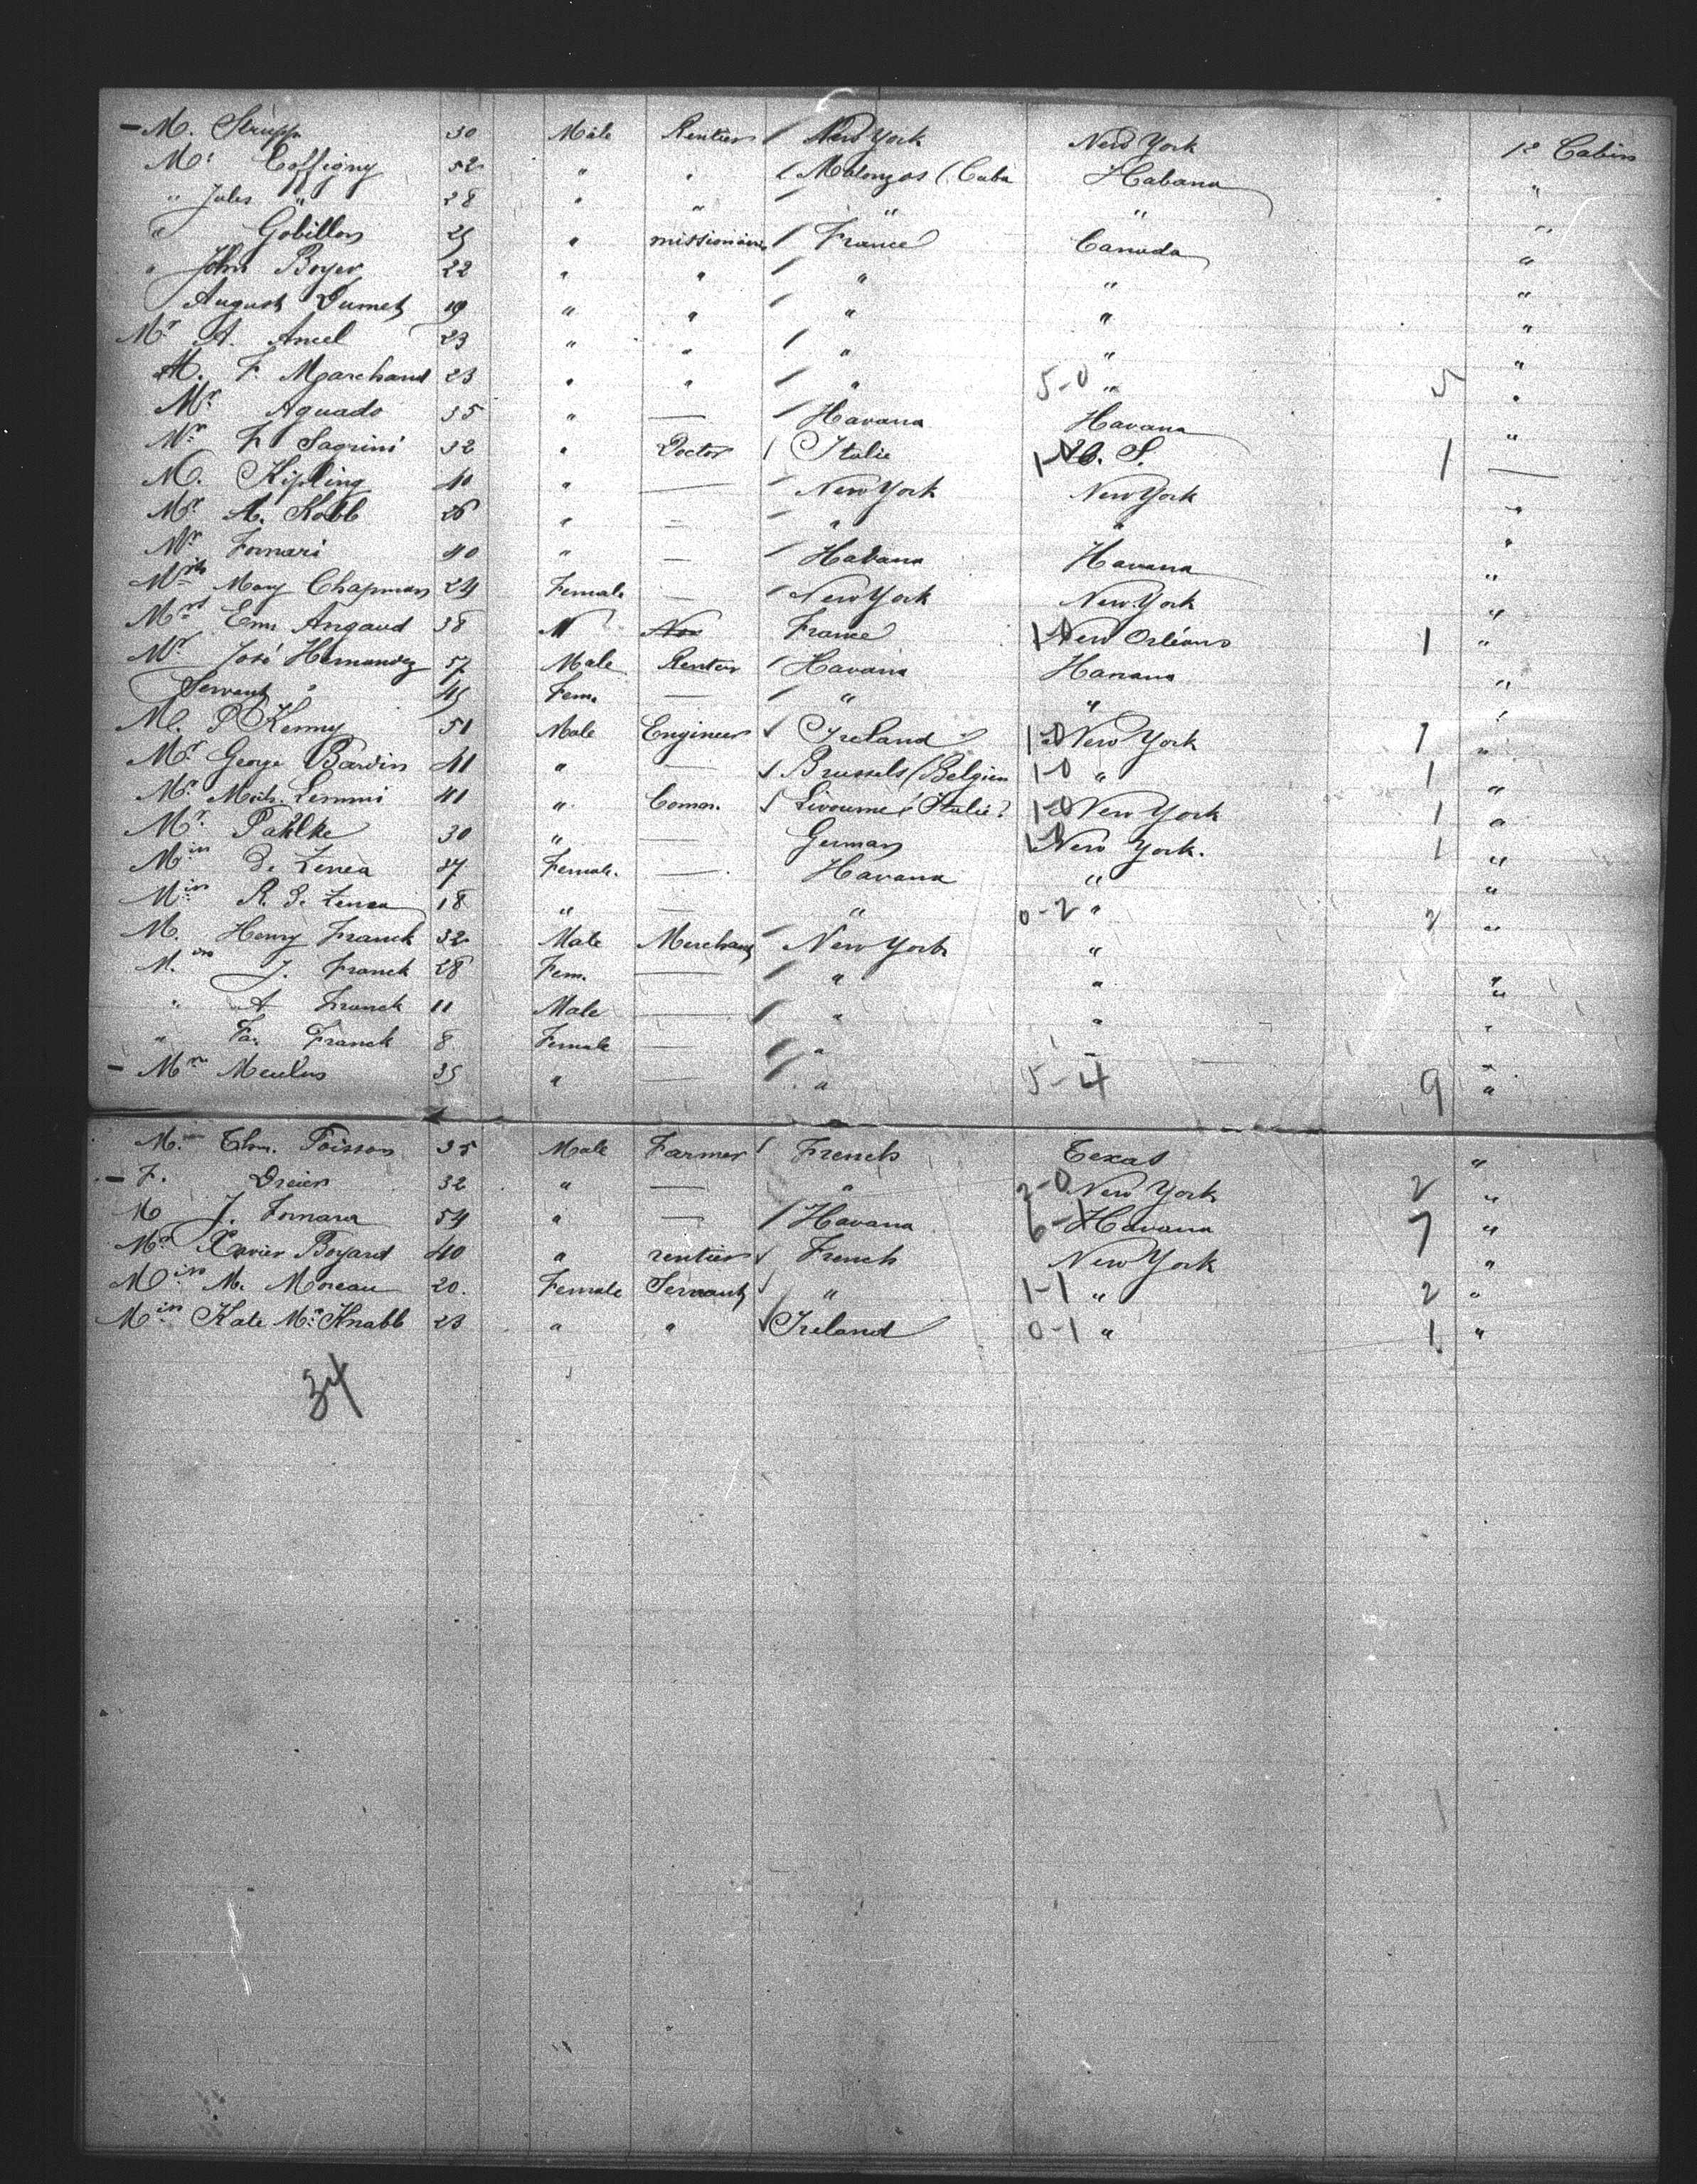 – M. Strupp 30 Male Rentier / New York New York 1e Cabin
Mr Coffigny 52 " " / Matanzas (Cuba Habana "
" Jules " 28 " " / " " "
" Gobillon 25 " missionaire / France Canada "
" John Boyer 22 " " / " " "
August Dumet 19 " " / " " "
Mr A. Ancel 23 " " / " " "
M. F. Marchand 23 " " / " 5-0 " 5 "
Mr Aguado 35 " — / Havana Havana "
Mr F. Sagrini 32 " Doctor / Italie 1-0 U. S. 1 —
M. Kipling 40 " — / New York New York "
Mr A. Kobb 26 " — / " " "
Mr Fornari 40 " — / Habana Havana "
Miss Mary Chapman 24 Female — / New York New York "
Mrs Em. Angaud 38 " France 1-0 New Orléans 1 "
Mr José Hernandez 57 Male Rentier / Havana Havana "
Servant " 45 Fem. — / " " "
M. P Kenny 51 Male Engineer √ Ireland 1-0 New York 1 "
Mr George Bardin 41 " — √ Brussels (Belgien 1-0 " 1 "
Mr Moih. Lemmi 41 " Comm. √ Livourne (Italie) 1-0 New York 1 "
Mr. Pahlke 30 " — German 1-0 New York. 1 "
Miss D. Zenea 37 Female. — Havana " "
Miss R. D. Zenea 18 " — " 0-2 " 2 "
M. Henry Franck 32 Male Merchant / New York " "
M. J. Franck 28 Fem. — / " " "
" A Franck 11 Male — / " " "
" Fa. Franck 8 Female — / " " "
– Mme Meulus 35 " — / " 5-4 9 "
M. Thm. Poisson 35 Male Farmer / French Texas "
– F. Dreier 32 " — " 2-0 New York 2 "
M J. Fornara 54 " — / Havana 6-1 Havana 7 "
Mr Xavier Boyard 40 " rentier √ French New York "
Miss M. Moreau 20. Female Servant √ " 1-1 " 2 "
Miss Kate Mc Knabb 23 " " √ Ireland 0-1 " 1 "
34